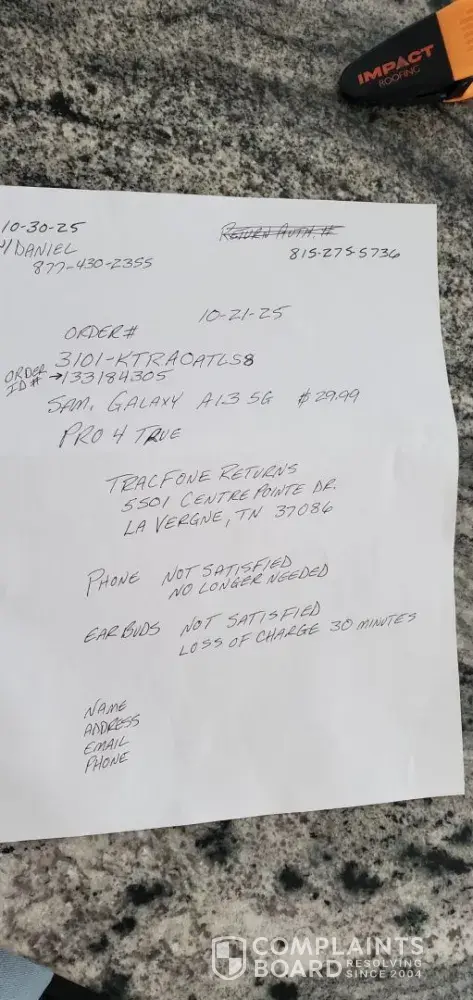 IMPACT
ROOFING
10-30-25
W/DANIEL
877-430-2355
RETURN AUTH. #
815-275-5736
10-21-25
ORDER#
3101-KTRACATLS8
ORDER ID# →133184305
SAM. GALAXY A13 5G $29.99
PRO 4 TRUE
TRACFONE RETURNS
5501 CENTRE POINTE DR.
LA VERGNE, TN 37086
PHONE NOT SATISFIED
NO LONGER NEEDED
EAR BUDS NOT SATISFIED
LOSS OF CHARGE 30 MINUTES
NAME
ADDRESS
EMAIL
PHONE
COMPLAINTS
BOARD RESOLVING SINCE 2004